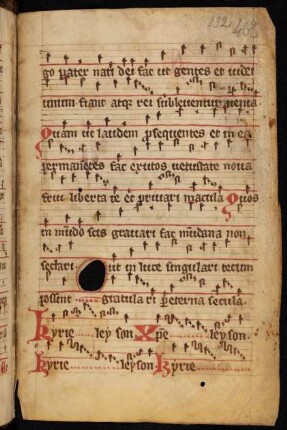 132
463
go pater nati dei fac ut gentes et iudei
unum fiant atq rei subleventur venia
Quam ut laudem psequentes et in ea
permanetes fac exutos vetustate nova
frui liberta te et privari macula Quos
in mudo scis gravari fac mudana non
sectari Ut in luce singulari tecum
possent gratula ri p eterna secula
Kyrie leyson Xpe leyson
Kyrie leyson Kyrie